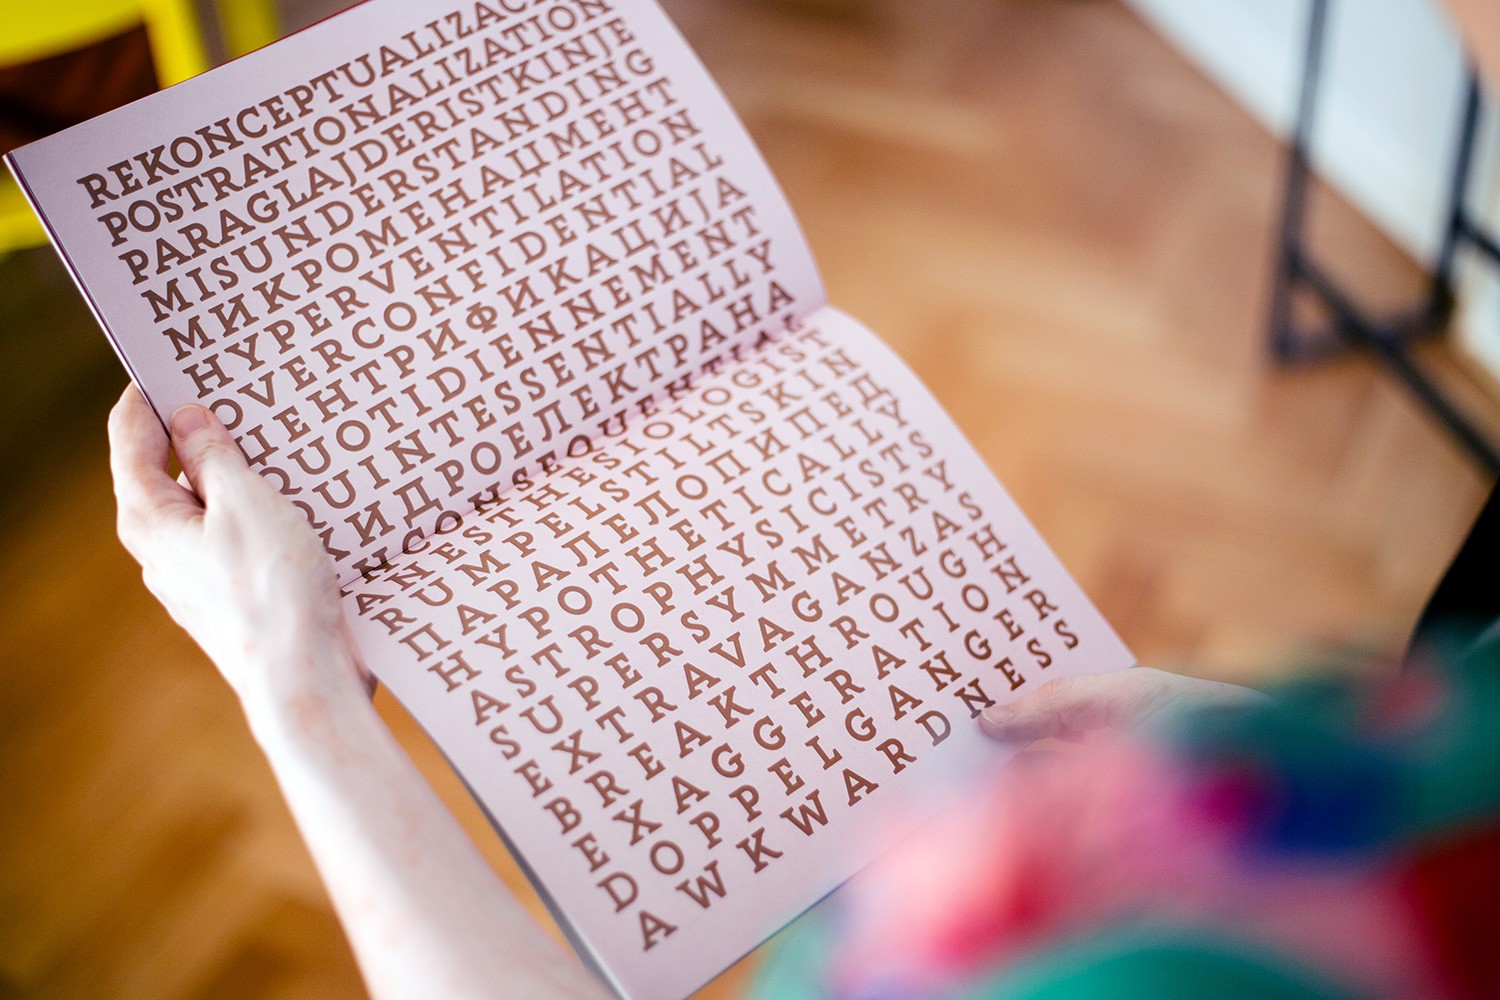 REKONCEPTUALIZAC
POSTRATIONALIZATION
PARAGLAJDERISTKINJE
MISUNDERSTANDING
МИКРОМЕНАЏМЕНТ
HYPERVENTILATION
OVERCONFIDENTIAL
ЏЕНТРИФИКАЦИЈА
QUOTIDIENNEMENT
QUINTESSENTIALLY
ХИДРОЕЛЕКТРАНА
INCONSEQUENTIAL
ANESTHESIOLOGIST
RUMPELSTILTSKIN
ПАРАЛЕЛОПИПЕД
HYPOTHETICALLY
ASTROPHYSICISTS
SUPERSYMMETRY
EXTRAVAGANZAS
BREAKTHROUGH
EXAGGERATION
DOPPELGANGER
AWKWARDNESS